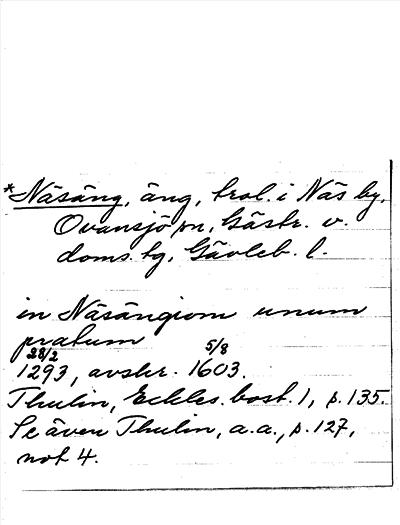 *Näsäng, äng, trol. i Näs by,
Ovansjö sn, Gästr. v.
doms. tg, Gävleb. l.
in Näsängiom unum
pratum
28/2 5/8
1293, avskr. 1603.
Thulin, Eckles. bost. 1, p. 135.
Se även Thulin, a.a., p. 127,
not 4.